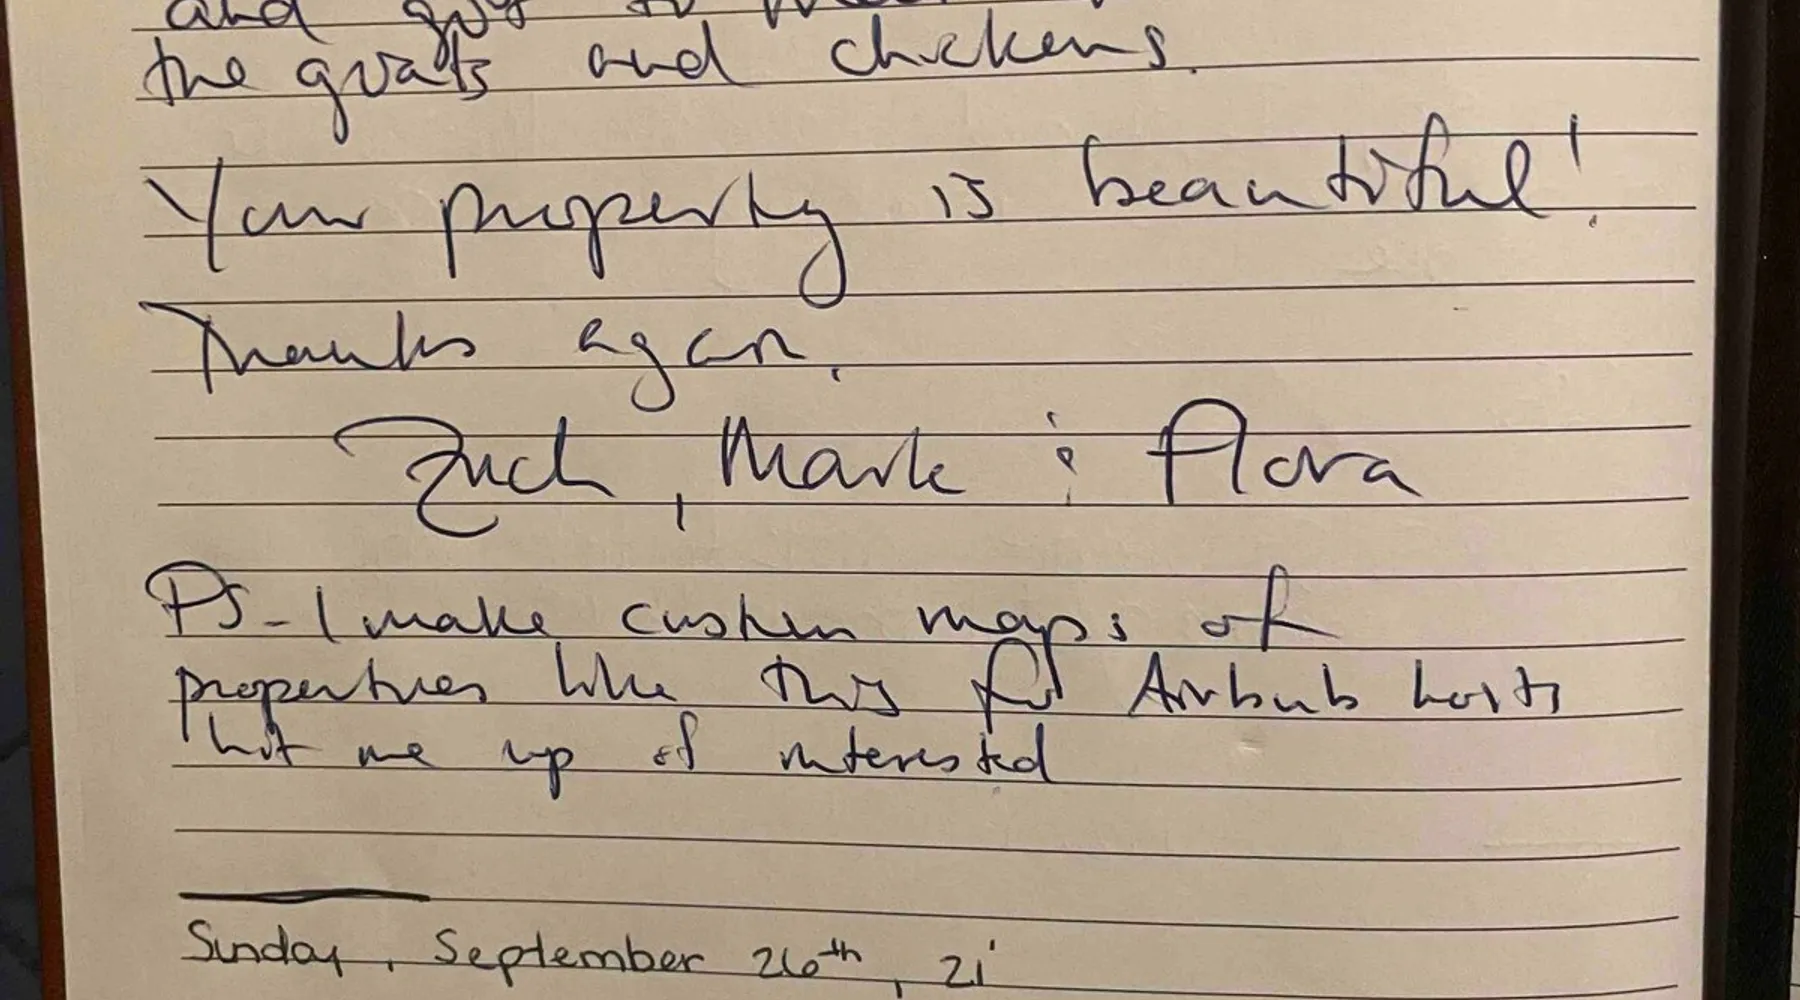 and got to meet
the goats and chickens.
Your property is beautiful!
Thanks again,
Zach, Mark & Flora
PS - I make custom maps of
properties like this for Airbnb hosts
hit me up if interested
Sunday, September 26th, 21'